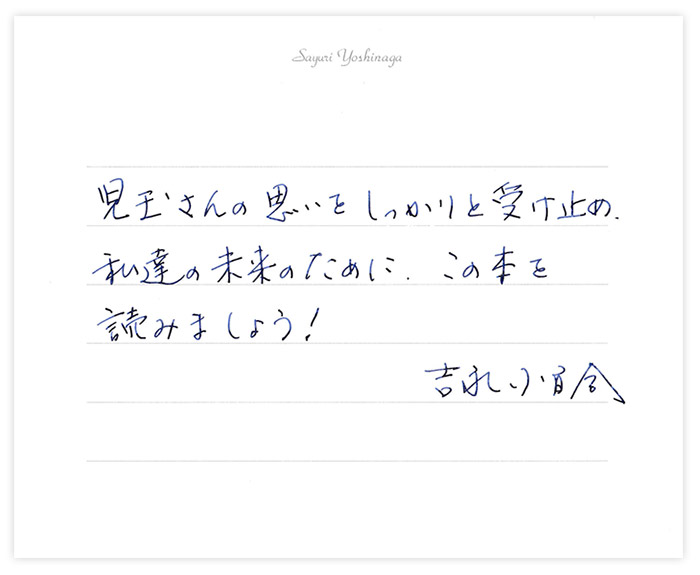 Sayuri Yoshinaga
児玉さんの思いをしっかりと受け止め、
私達の未来のために、この本を
読みましょう!
吉永小百合